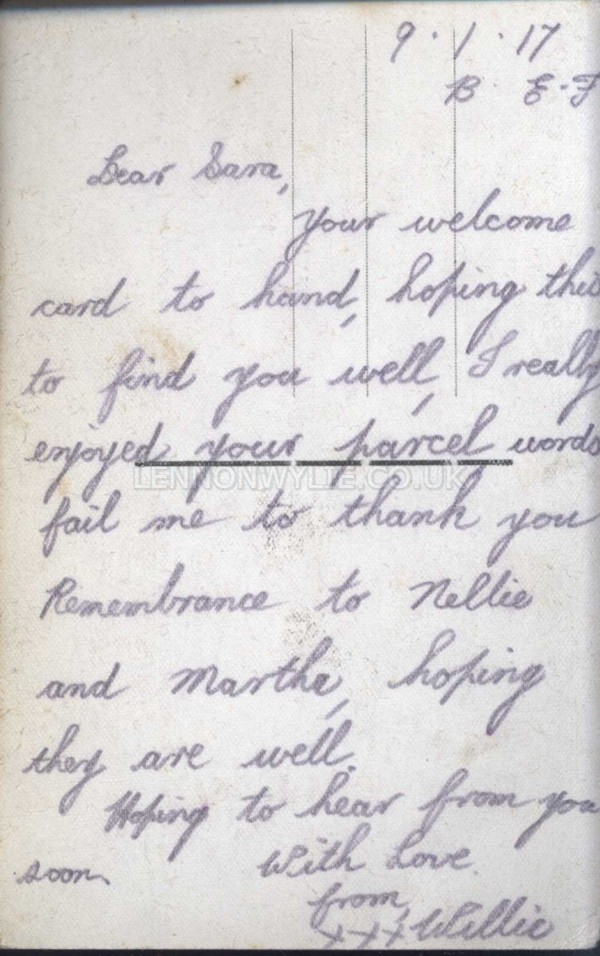 9.1.17
B.E.F
Dear Sara,
your welcome
card to hand, hoping this
to find you well, I really
enjoyed your parcel words
LENNONWYLIE.CO.UK
fail me to thank you
Remembrance to Nellie
and Martha, hoping
they are well.
Hoping to hear from you
soon. With Love.
from,
xxx Willie